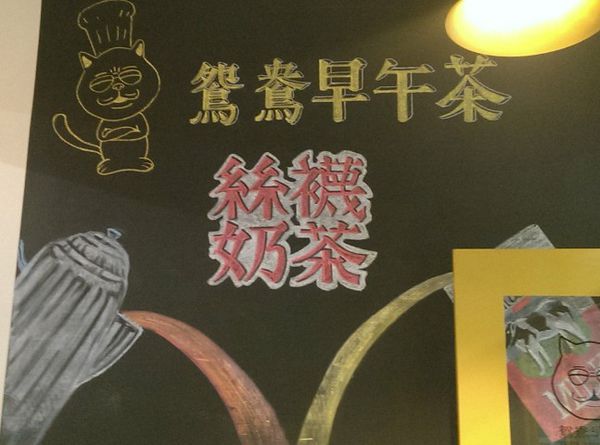 鴛鴦早午茶
絲襪
奶茶